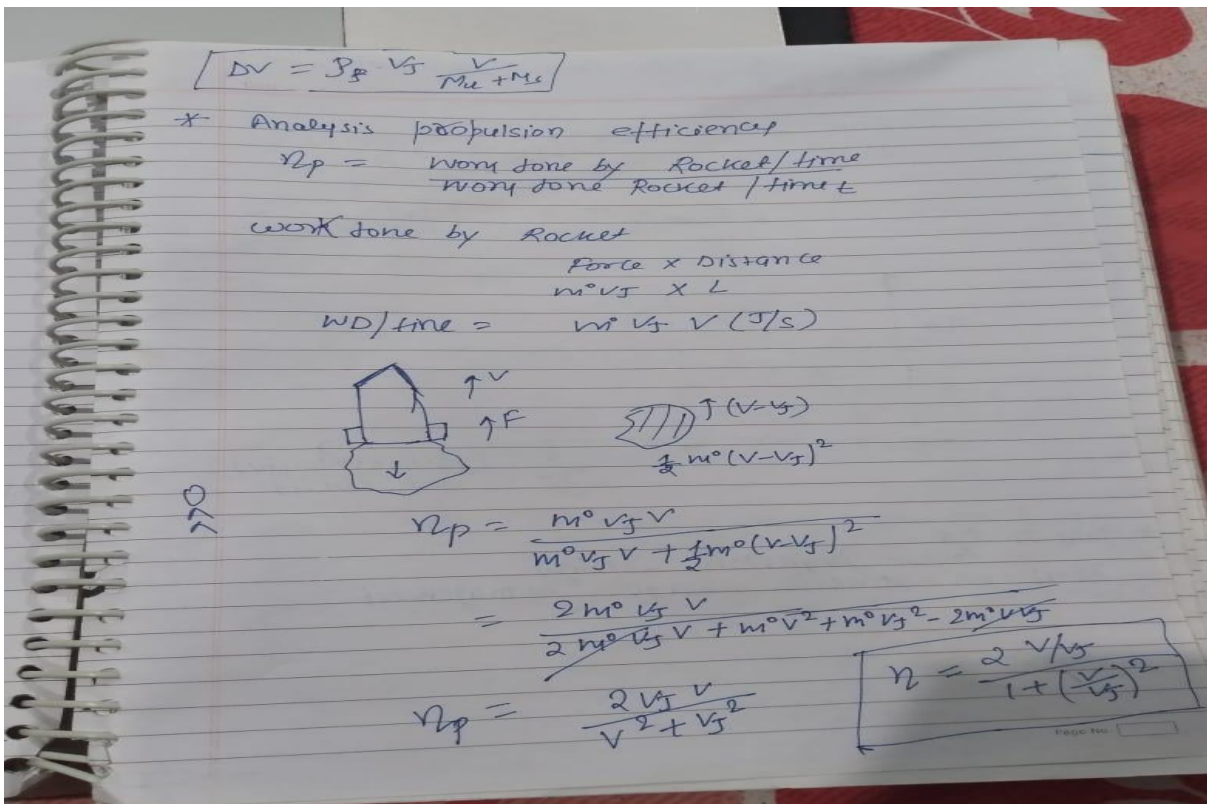 ΔV = ρ_p V_J V/(M_u + M_s)
* Analysis propulsion efficiency
η_p = work done by Rocket/time / work done Rocket / time t
work done by Rocket
Force x Distance
m° V_J x L
WD/time = m° V_J V (J/s)
↑ V
↑ F
↑ (V-V_J)
1/2 m° (V-V_J)²
η_p = m° V_J V / (m° V_J V + 1/2 m° (V-V_J)²)
= 2 m° V_J V / (2 m° V_J V + m° V² + m° V_J² - 2 m° V V_J)
η_p = 2 V_J V / (V² + V_J²)
η = 2 V/V_J / (1 + (V/V_J)²)
Page No